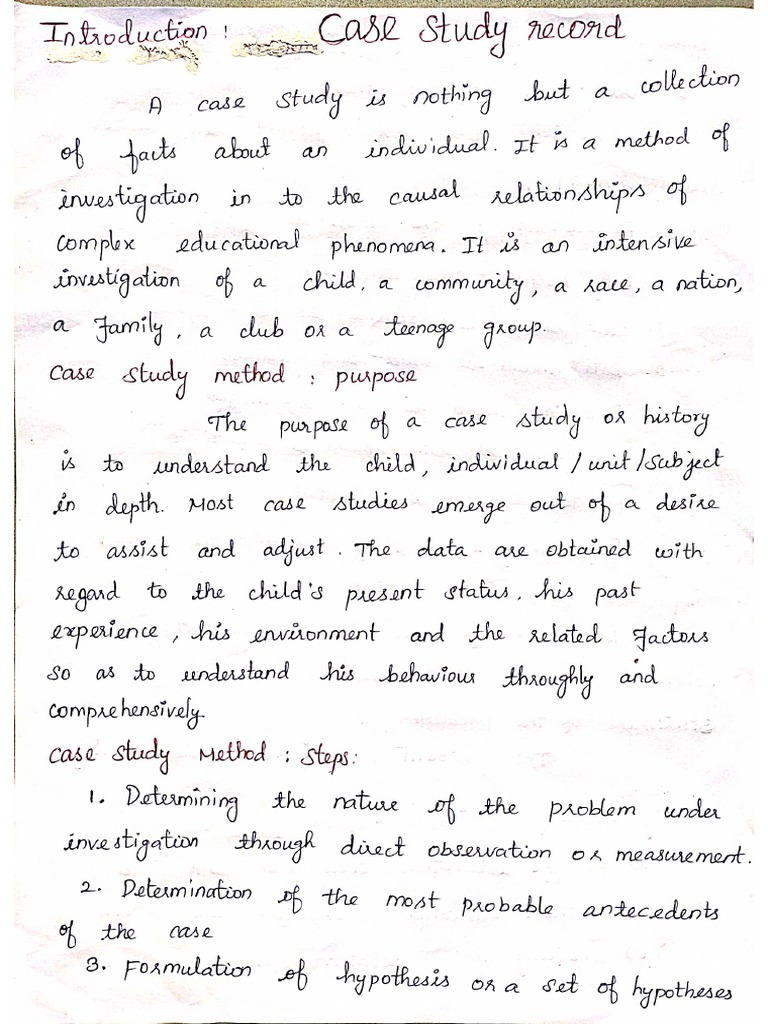 Introduction : Case Study record
A case study is nothing but a collection
of facts about an individual. It is a method of
investigation in to the causal relationships of
complex educational phenomena. It is an intensive
investigation of a child, a community, a race, a nation,
a family, a club or a teenage group.
Case study method : purpose
The purpose of a case study or history
is to understand the child, individual/unit/subject
in depth. Most case studies emerge out of a desire
to assist and adjust. The data are obtained with
regard to the child's present status, his past
experience, his environment and the related factors
so as to understand his behaviour throughly and
comprehensively.
Case Study Method : Steps:
1. Determining the nature of the problem under
investigation through direct observation or measurement.
2. Determination of the most probable antecedents
of the case
3. Formulation of hypothesis or a set of hypotheses